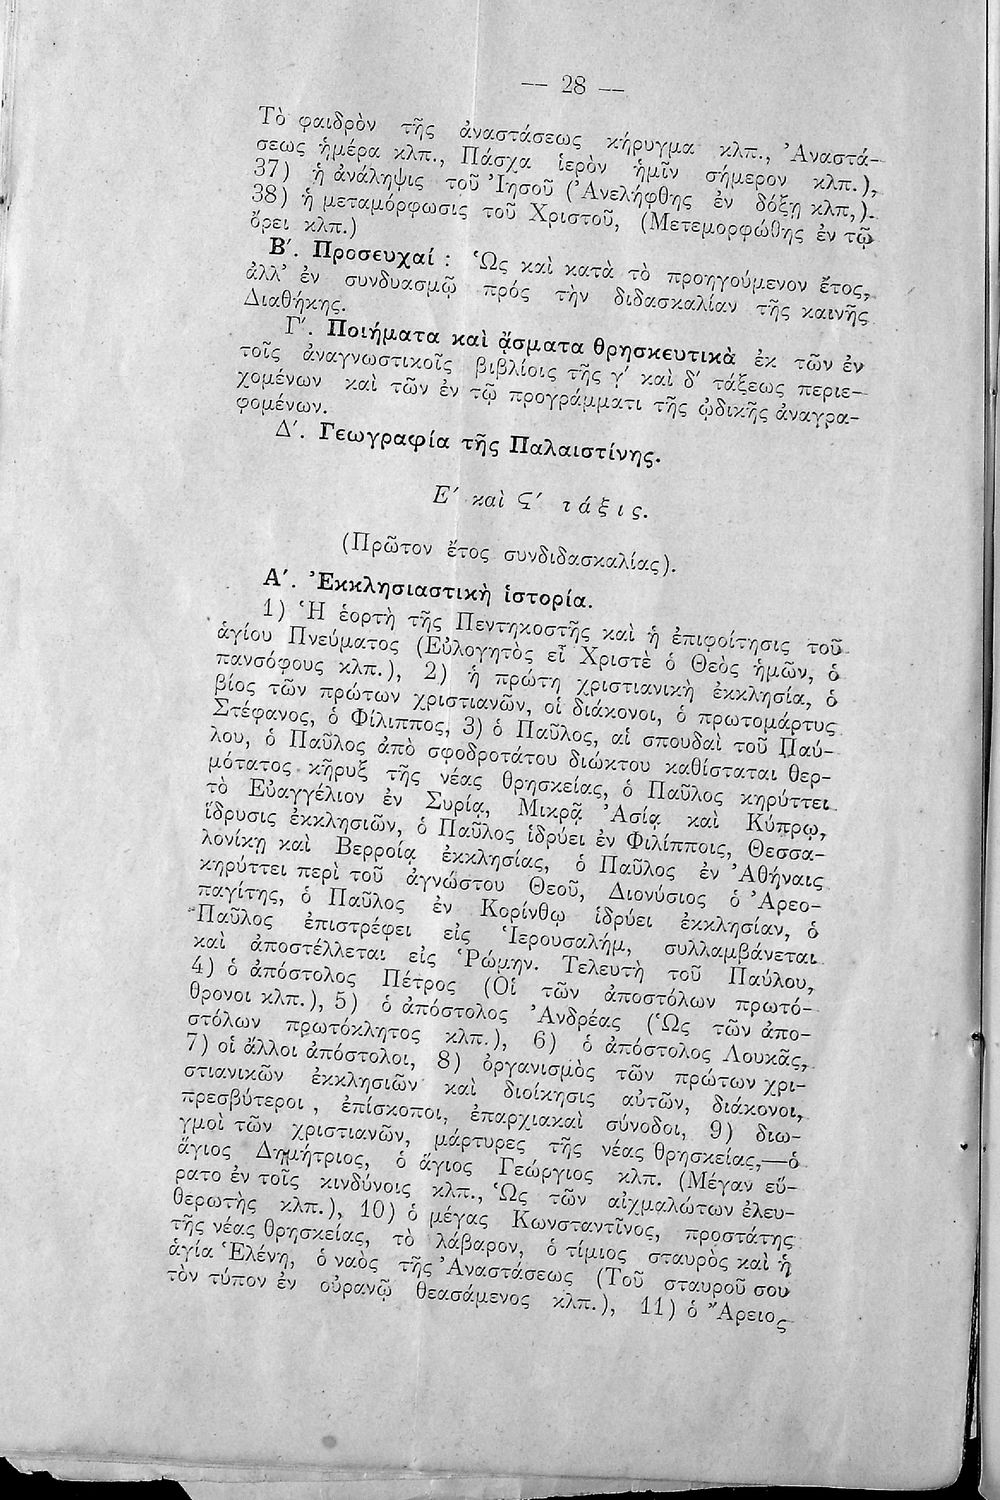 — 28 —
Τὸ φαιδρὸν τῆς ἀναστάσεως κήρυγμα κλπ., Ἀναστά-
σεως ἡμέρα κλπ., Πάσχα ἱερὸν ἡμῖν σήμερον κλπ.),
37) ἡ ἀνάληψις τοῦ Ἰησοῦ (Ἀνελήφθης ἐν δόξῃ κλπ,).
38) ἡ μεταμόρφωσις τοῦ Χριστοῦ, (Μετεμορφώθης ἐν τῷ
ὄρει κλπ.)
Β΄. Προσευχαί : Ὡς καὶ κατὰ τὸ προηγούμενον ἔτος,
ἀλλ' ἐν συνδυασμῷ πρός τὴν διδασκαλίαν τῆς καινῆς
Διαθήκης.
Γ΄. Ποιήματα καὶ ᾄσματα θρησκευτικὰ ἐκ τῶν ἐν
τοῖς ἀναγνωστικοῖς βιβλίοις τῆς γ΄ καὶ δ΄ τάξεως περιε-
χομένων καὶ τῶν ἐν τῷ προγράμματι τῆς ᾠδικῆς ἀναγρα-
φομένων.
Δ΄. Γεωγραφία τῆς Παλαιστίνης.
Ε΄ καὶ Ϛ΄ τάξις.
(Πρῶτον ἔτος συνδιδασκαλίας).
Α΄. Ἐκκλησιαστικὴ ἱστορία.
1) Ἡ ἑορτὴ τῆς Πεντηκοστῆς καὶ ἡ ἐπιφοίτησις τοῦ
ἁγίου Πνεύματος (Εὐλογητὸς εἶ Χριστὲ ὁ Θεὸς ἡμῶν, ὁ
πανσόφους κλπ.), 2) ἡ πρώτη χριστιανικὴ ἐκκλησία, ὁ
βίος τῶν πρώτων χριστιανῶν, οἱ διάκονοι, ὁ πρωτομάρτυς
Στέφανος, ὁ Φίλιππος, 3) ὁ Παῦλος, αἱ σπουδαὶ τοῦ Παύ-
λου, ὁ Παῦλος ἀπὸ σφοδροτάτου διώκτου καθίσταται θερ-
μότατος κῆρυξ τῆς νέας θρησκείας, ὁ Παῦλος κηρύττει
τὸ Εὐαγγέλιον ἐν Συρίᾳ, Μικρᾷ Ἀσίᾳ καὶ Κύπρῳ,
ἵδρυσις ἐκκλησιῶν, ὁ Παῦλος ἱδρύει ἐν Φιλίπποις, Θεσσα-
λονίκῃ καὶ Βερροίᾳ ἐκκλησίας, ὁ Παῦλος ἐν Ἀθήναις
κηρύττει περὶ τοῦ ἀγνώστου Θεοῦ, Διονύσιος ὁ Ἀρεο-
παγίτης, ὁ Παῦλος ἐν Κορίνθῳ ἱδρύει ἐκκλησίαν, ὁ
Παῦλος ἐπιστρέφει εἰς Ἱερουσαλήμ, συλλαμβάνεται
καὶ ἀποστέλλεται εἰς Ῥώμην. Τελευτὴ τοῦ Παύλου,
4) ὁ ἀπόστολος Πέτρος (Οἱ τῶν ἀποστόλων πρωτό-
θρονοι κλπ.), 5) ὁ ἀπόστολος Ἀνδρέας (Ὡς τῶν ἀπο-
στόλων πρωτόκλητος κλπ.), 6) ὁ ἀπόστολος Λουκᾶς,
7) οἱ ἄλλοι ἀπόστολοι, 8) ὀργανισμὸς τῶν πρώτων χρι-
στιανικῶν ἐκκλησιῶν καὶ διοίκησις αὐτῶν, διάκονοι,
πρεσβύτεροι , ἐπίσκοποι, ἐπαρχιακαὶ σύνοδοι, 9) διω-
γμοὶ τῶν χριστιανῶν, μάρτυρες τῆς νέας θρησκείας,—ὁ
ἅγιος Δημήτριος, ὁ ἅγιος Γεώργιος κλπ. (Μέγαν εὕ-
ρατο ἐν τοῖς κινδύνοις κλπ., Ὡς τῶν αἰχμαλώτων ἐλευ-
θερωτὴς κλπ.), 10) ὁ μέγας Κωνσταντῖνος, προστάτης
τῆς νέας θρησκείας, τὸ λάβαρον, ὁ τίμιος σταυρὸς καὶ ἡ
ἁγία Ἑλένη, ὁ ναὸς τῆς Ἀναστάσεως (Τοῦ σταυροῦ σου
τὸν τύπον ἐν οὐρανῷ θεασάμενος κλπ.), 11) ὁ Ἄρειος